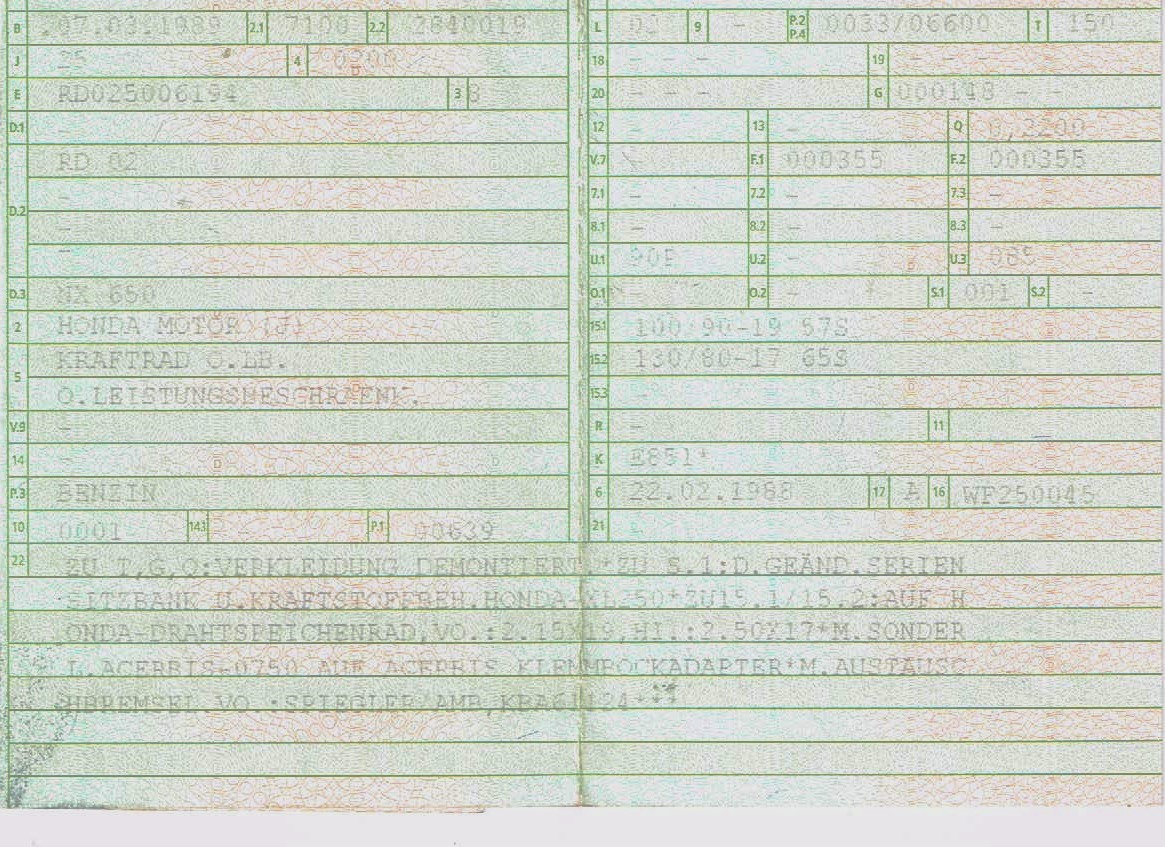 B 07.03.1989 2.1 7100 2.2 2840019 L 02 9 - P.2 P.4 0033/06600 T 150
J 25 4 0200 18 - - - 19 - - -
E RD025006194 3 8 20 - - - G 000148 - -
D.1 12 - 13 - Q 0,2200
RD 02 V.7 F.1 000355 F.2 000355
D.2 - 7.1 - 7.2 - 7.3 -
- 8.1 - 8.2 - 8.3 -
- U.1 90P U.2 - U.3 085
D.3 NX 650 O.1 - O.2 - S.1 001 S.2 -
2 HONDA MOTOR (J) 15.1 100/90-19 57S
5 KRAFTRAD O.LB. 15.2 130/80-17 65S
O.LEISTUNGSBESCHRAENK. 15.3 -
V.9 - R - 11
14 - K E851*
P.3 BENZIN 6 22.02.1988 17 A 16 WF250045
10 0001 14.3 P.1 00639 21
22 ZU T,G,Q:VERKLEIDUNG DEMONTIERT.*ZU S.1:D.GEÄND.SERIEN
SITZBANK U.KRAFTSTOFFBEH.HONDA-XL250*ZU15.1/15.2:AUF H
ONDA-DRAHTSPEICHENRAD,VO.:2.15X19,HI.:2.50X17*M.SONDER
L.ACERBIS-0750 AUF ACERBIS KLEMMBOCKADAPTER*M.AUSTAUSC
HBREMSEL.VO.:SPIEGLER/AMB,KBA61124***